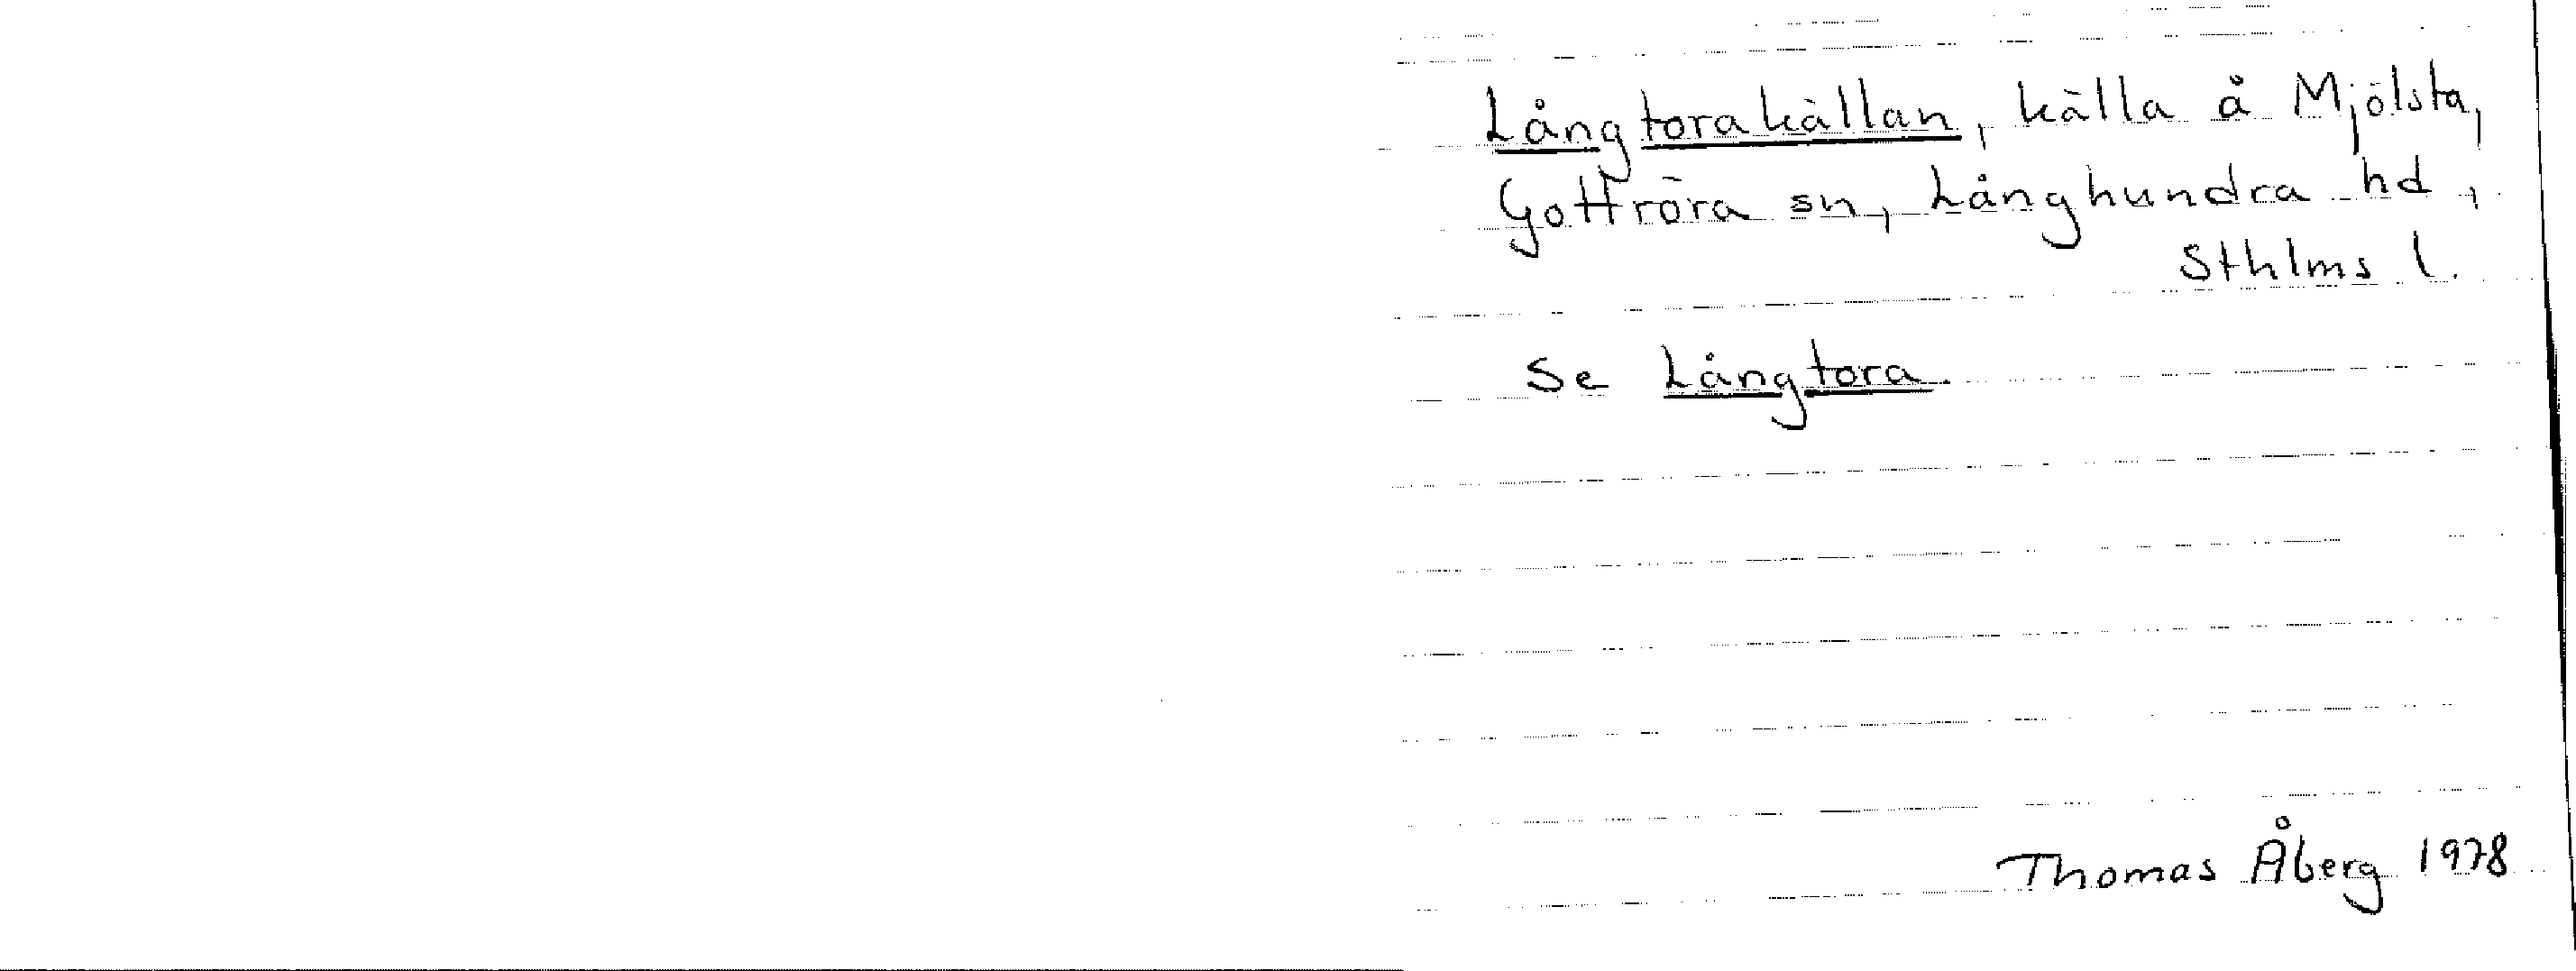 Långtorakällan, källa å Mjölsta,
Gottröra sn, Långhundra hd,
Sthlms l.
Se Långtora.
Thomas Åberg 1978